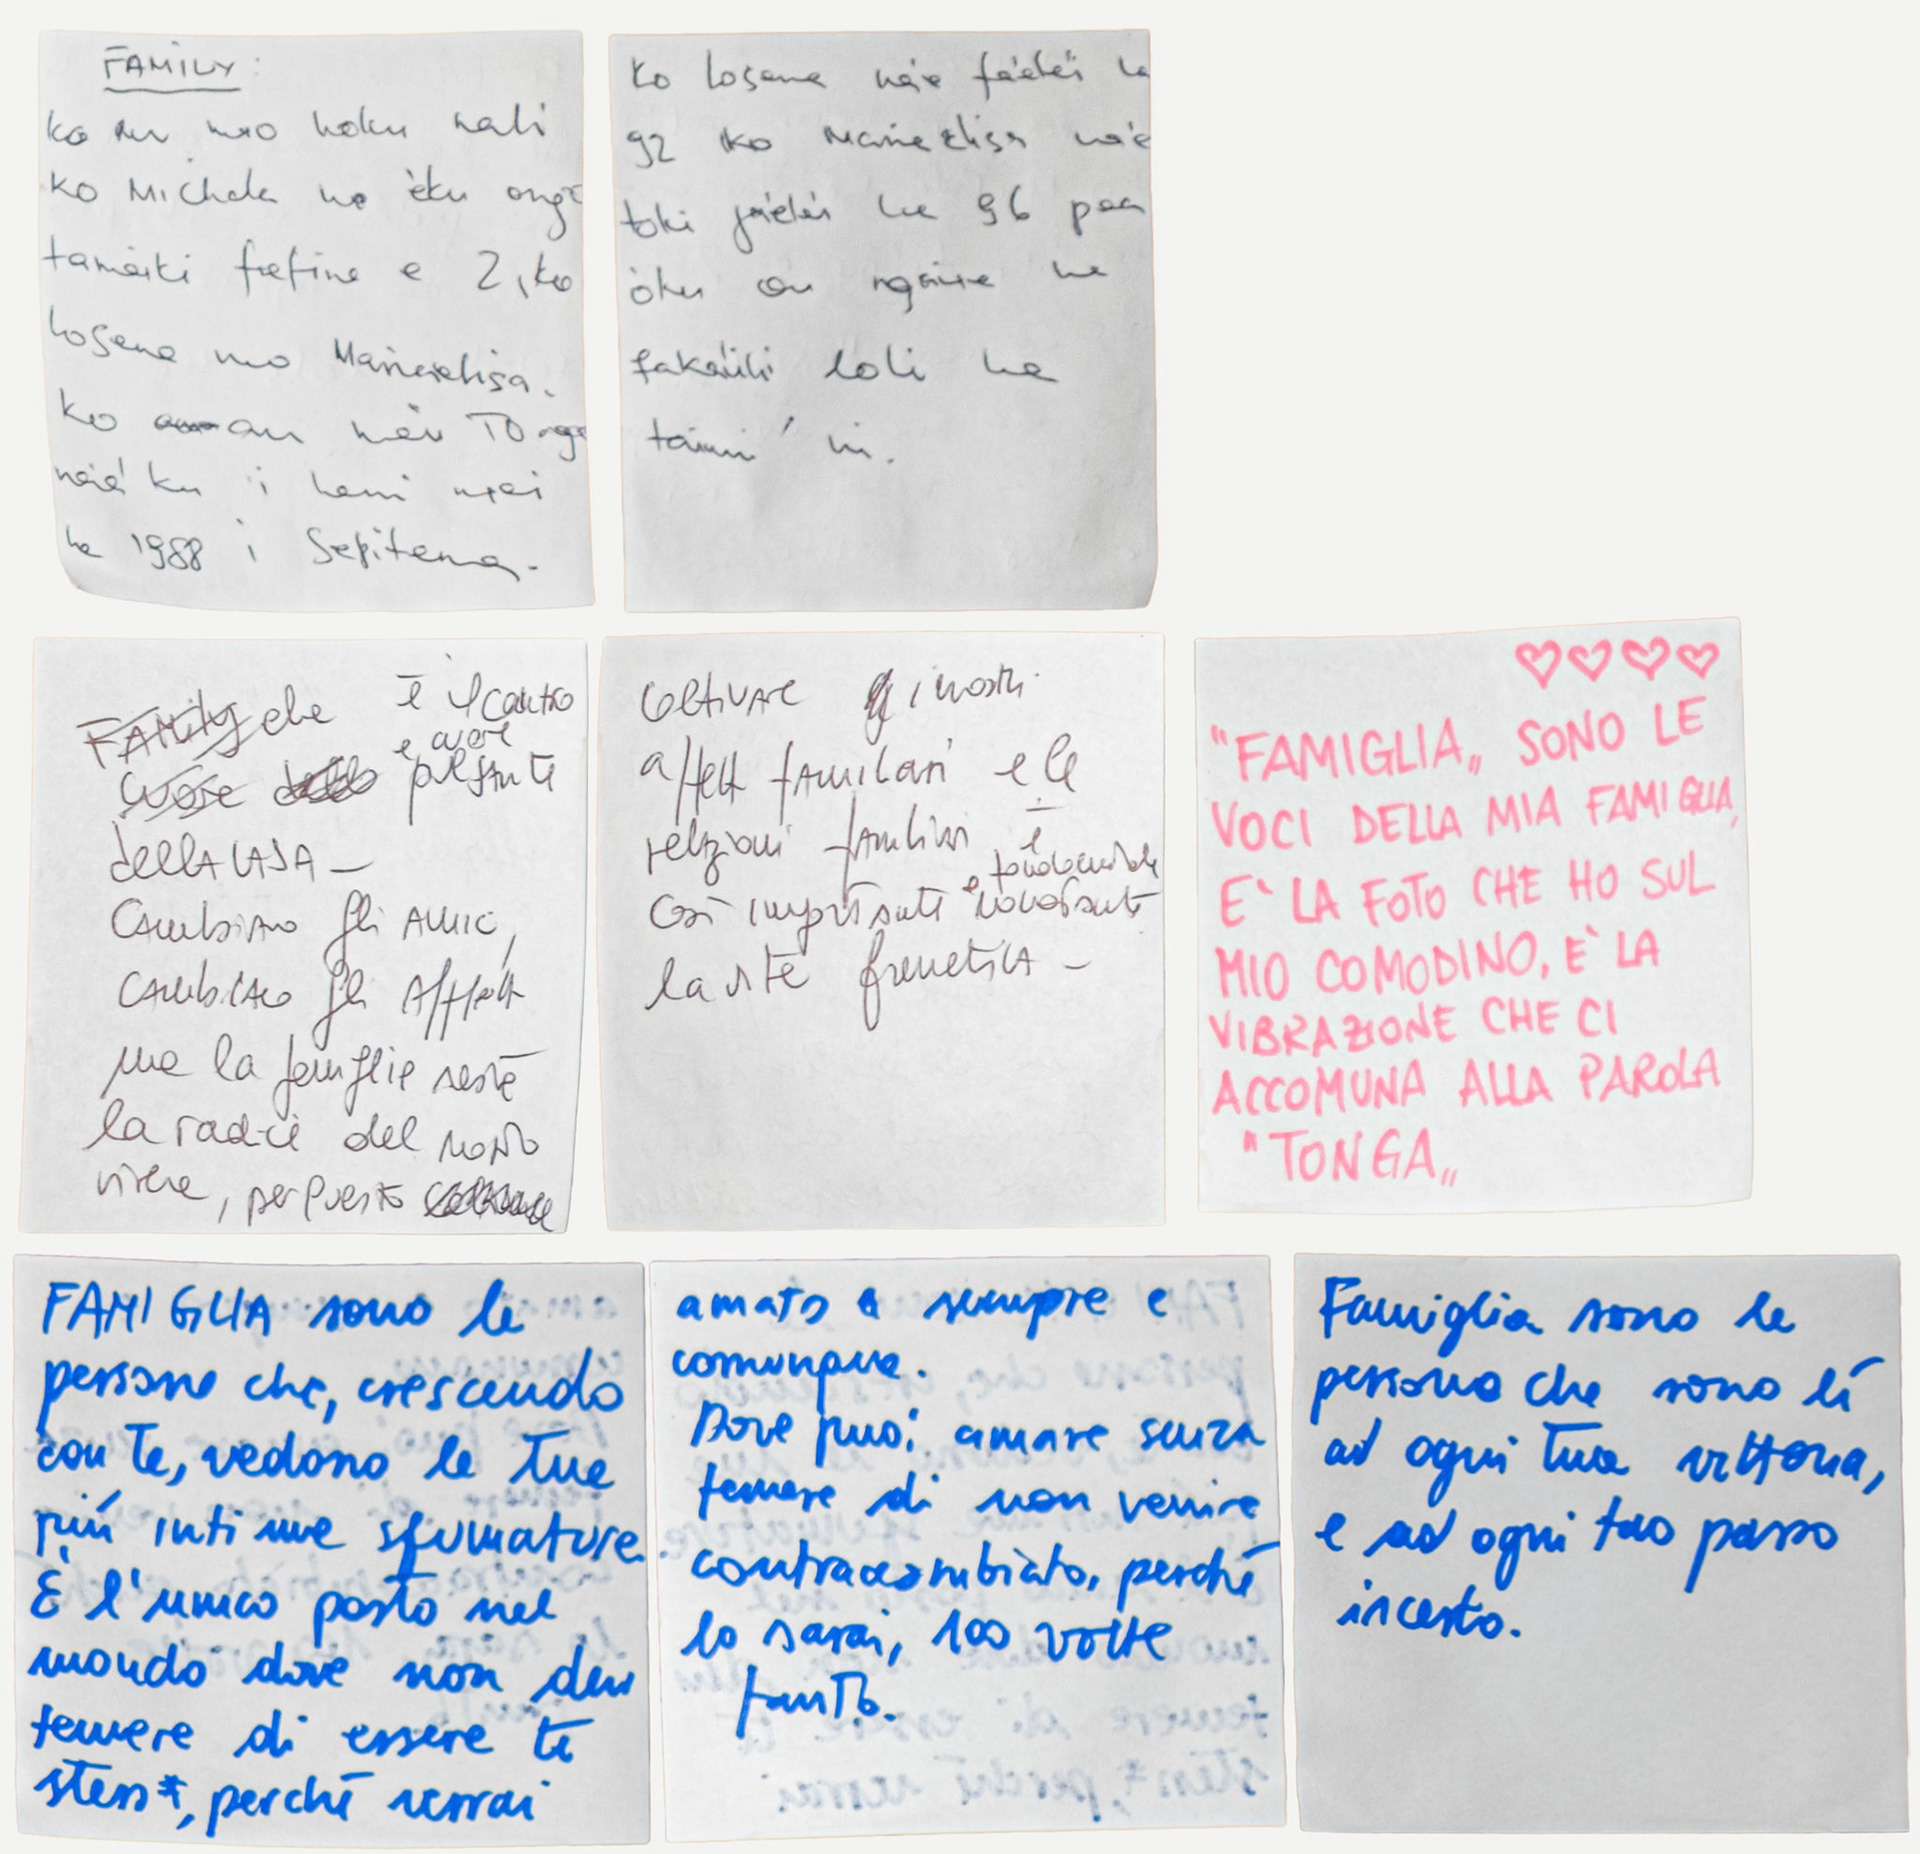 FAMILY:
ko au mo hoku mali
ko Michele
tamaiki fefine e 2, ko
Losana mo Mariaelisa.
ko au Tonga
i heni
he 1988 i Sepitema.
ko Losana na'e fa'ele'i he
92 ko Mariaelisa na'e
toki fa'ele'i he 96 pea
óku ou ngaue he
faka'uli loli he
taimi ni.
FAMILY che è il cuore
e cuore
pulsante
della CASA –
Cambiano gli AMICI,
CAMBIANO gli Affetti
ma la famiglia resta
la radice del nostro
vivere, per questo
COLTIVARE i nostri
affetti familiari e le
relazioni familiari è
così importante e fondamentale nonostante
la vita frenetica –
"FAMIGLIA„ SONO LE
VOCI DELLA MIA FAMIGLIA,
E` LA FOTO CHE HO SUL
MIO COMODINO, E` LA
VIBRAZIONE CHE CI
ACCOMUNA ALLA PAROLA
"TONGA„
FAMIGLIA sono le
persone che, crescendo
con te, vedono le tue
più intime sfumature.
È l'unico posto nel
mondo dove non devi
temere di essere te
stess*, perché verrai
amato sempre e
comunque.
Dove puoi amare senza
temere di non venire
contraccambiato, perché
lo sarai, 100 volte
tanto.
Famiglia sono le
persone che sono lì
ad ogni tua vittoria,
e ad ogni tuo passo
incerto.